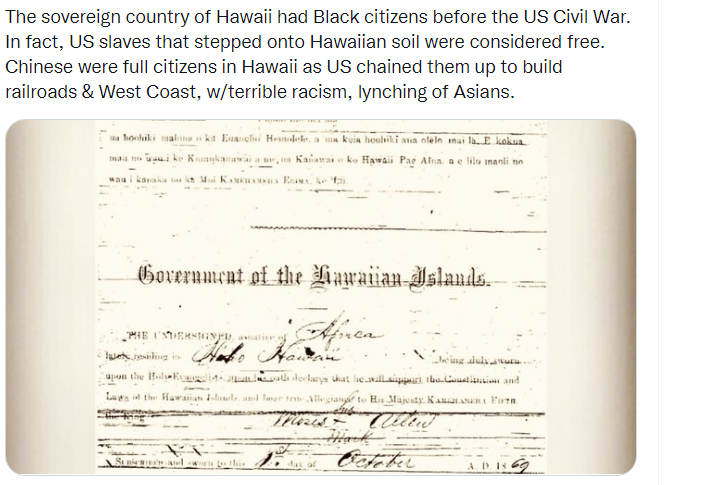 The sovereign country of Hawaii had Black citizens before the US Civil War.
In fact, US slaves that stepped onto Hawaiian soil were considered free.
Chinese were full citizens in Hawaii as US chained them up to build
railroads & West Coast, w/terrible racism, lynching of Asians.
hoohiki ka Euanelio Hemolele, a ua keia hoohiki ana olelo mai la, E kokua
ke Kumukanawai a me na Kanawai o ko Hawaii Pae Aina, a e lilo maoli no
wau i kanaka no ka Moi
Government of the Hawaiian Islands.
THE UNDERSIGNED, a native of Africa
lately residing in Hawaii being duly sworn
upon the Holy Evangelists, upon his oath declares that he will support the Constitution and
Laws of the Hawaiian Islands, and bear true Allegiance to His Majesty, KAMEHAMEHA
the King
his
Moses + Allen
Mark
and sworn to this 1st day of October A. D. 1869